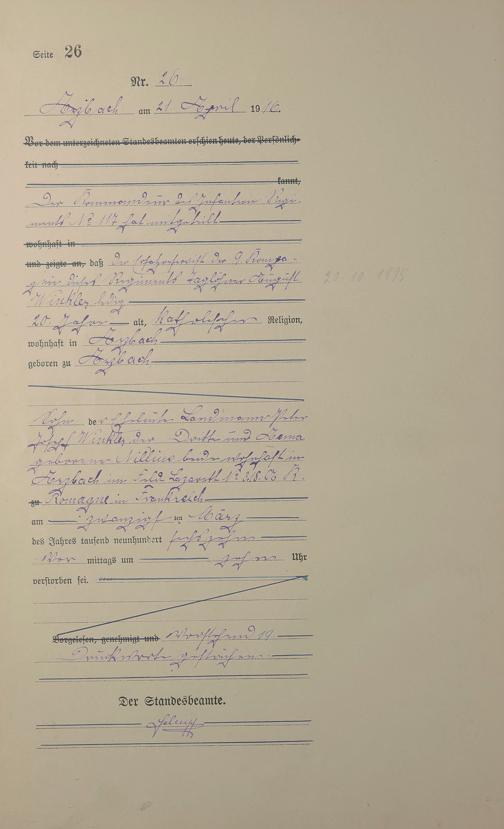 Seite 26
Nr. 26
Arzbach am 21 April 1916.
Vor dem unterzeichneten Standesbeamten erschien heute, der Persönlich-
keit nach
kannt,
Der Kommandeur des Infanterie Regi-
ments No 117 hat mitgeteilt
wohnhaft in
und zeigte an, daß der Ersatzreservist der 9. Kompa-
gnie dieses Regiments Taglöhner August
Winkler ledig
20 Jahre alt, katholischer Religion,
wohnhaft in Arzbach
geboren zu Arzbach
Sohn der Eheleute Landmann Peter
Josef Winkler der Dritte und Anna
geborener Nillius beide wohnhaft in
Arzbach im Feld Lazareth No
zu Romagne in Frankreich
am zwanzigsten März
des Jahres tausend neunhundert sechszehn
Vor mittags um zehn Uhr
verstorben sei.
Vorgelesen, genehmigt und Vorstehend 19
Druckworte gestrichen.
Der Standesbeamte.